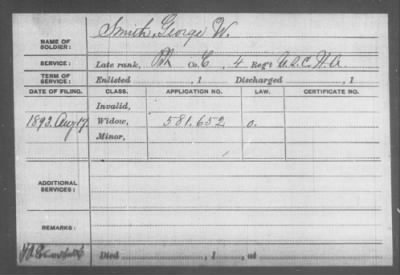 NAME OF SOLDIER: Smith, George W.
SERVICE: Late rank, Co. C, 4 Reg't U.S.C.H.A
TERM OF SERVICE: Enlisted , 1 Discharged , 1
DATE OF FILING. CLASS. APPLICATION NO. LAW. CERTIFICATE NO.
Invalid,
1893. Aug 17. Widow, 581.652 o.
Minor,
ADDITIONAL SERVICES:
REMARKS:
Died , 1 , at